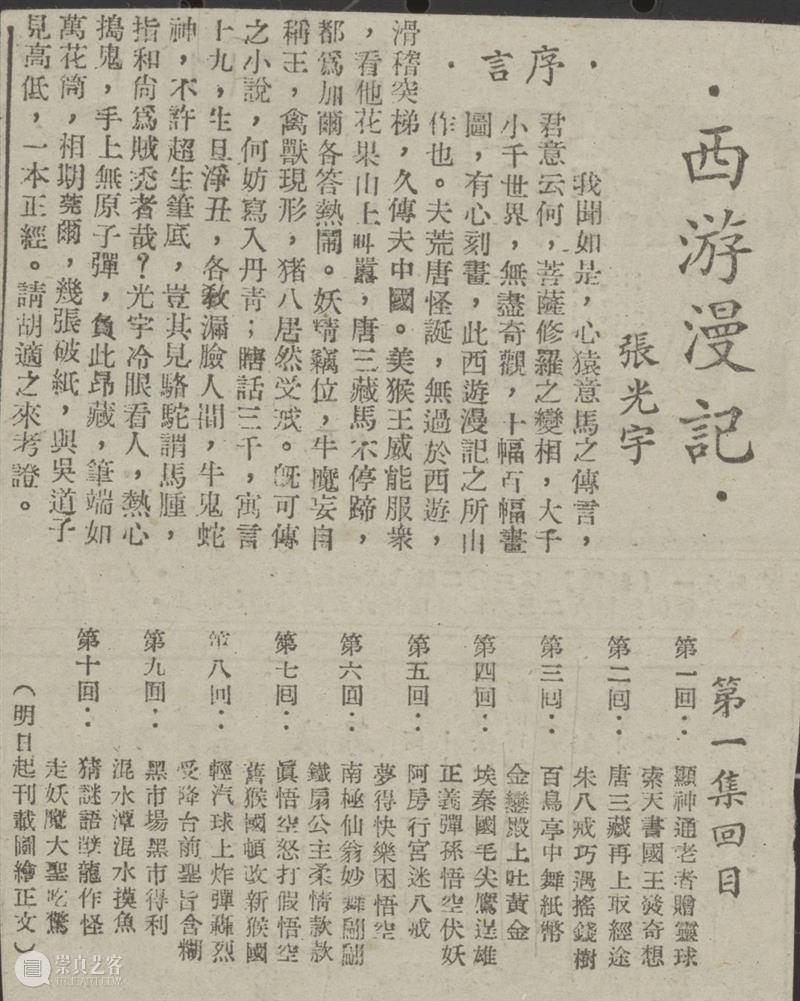 ·西游漫記·
張光宇
·序言·
我聞如是，心猿意馬之傳言，
君意云何，菩薩修羅之變相，大千
小千世界，無盡奇觀，十幅百幅畫
圖，有心刻畫，此西遊漫記之所由
作也。夫荒唐怪誕，無過於西遊，
滑稽突梯，久傳夫中國。美猴王威能服衆
，看他花果山上叫囂，唐三藏馬不停蹄，
都爲加爾各答熱鬧。妖精竊位，牛魔妄自
稱王，禽獸現形，猪八居然受戒。旣可傳
之小說，何妨寫入丹青；瞎話三千，寓言
十九，生旦淨丑，各教漏臉人間，牛鬼蛇
神，不許超生筆底，豈其見駱駝謂馬腫，
指和尙爲賊禿者哉？光宇冷眼看人，熱心
搗鬼，手上無原子彈，負此昂藏，筆端如
萬花筒，相期莞爾，幾張破紙，與吳道子
見高低，一本正經。請胡適之來考證。
第一集回目
第一回：顯神通老者贈靈球
索天書國王發奇想
第二回：唐三藏再上取經途
朱八戒巧遇搖錢樹
第三回：百鳥亭中舞紙幣
金鑾殿上吐黃金
第四回：埃秦國毛尖鷹逞雄
正義彈孫悟空伏妖
第五回：阿房行宮迷八戒
夢得快樂困悟空
第六回：南極仙翁妙舞翩翩
鐵扇公主柔情款款
第七回：眞悟空怒打假悟空
舊猴國頓改新猴國
第八回：輕汽球上炸彈轟烈
受降台前聖旨含糊
第九回：黑市場黑市得利
混水潭混水摸魚
第十回：猪謎語孽龍作怪
走妖魔大聖吃驚
（明日起刊載圖繪正文）
崇真艺客